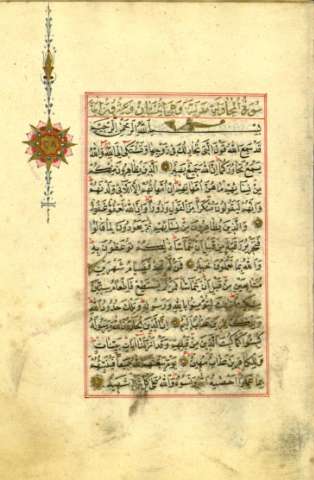 سورة المجادلة مدنية وهي اثنتان وعشرون آية
بسم الله الرحمن الرحيم
قد سمع الله قول التي تجادلك في زوجها وتشتكي إلى الله والله
يسمع تحاوركما إن الله سميع بصير الذين يظاهرون منكم
من نسائهم ما هن أمهاتهم إن أمهاتهم إلا اللائي ولدنهم
وإنهم ليقولون منكرا من القول وزورا وإن الله لعفو غفور
والذين يظاهرون من نسائهم ثم يعودون لما قالوا
فتحرير رقبة من قبل أن يتماسا ذلكم توعظون به
والله بما تعملون خبير فمن لم يجد فصيام شهرين
متتابعين من قبل أن يتماسا فمن لم يستطع فإطعام ستين
مسكينا ذلك لتؤمنوا بالله ورسوله وتلك حدود الله
وللكافرين عذاب أليم إن الذين يحادون الله ورسوله
كبتوا كما كبت الذين من قبلهم وقد أنزلنا آيات بينات
وللكافرين عذاب مهين يوم يبعثهم الله جميعا فينبئهم
بما عملوا أحصاه الله ونسوه والله على كل شيء شهيد